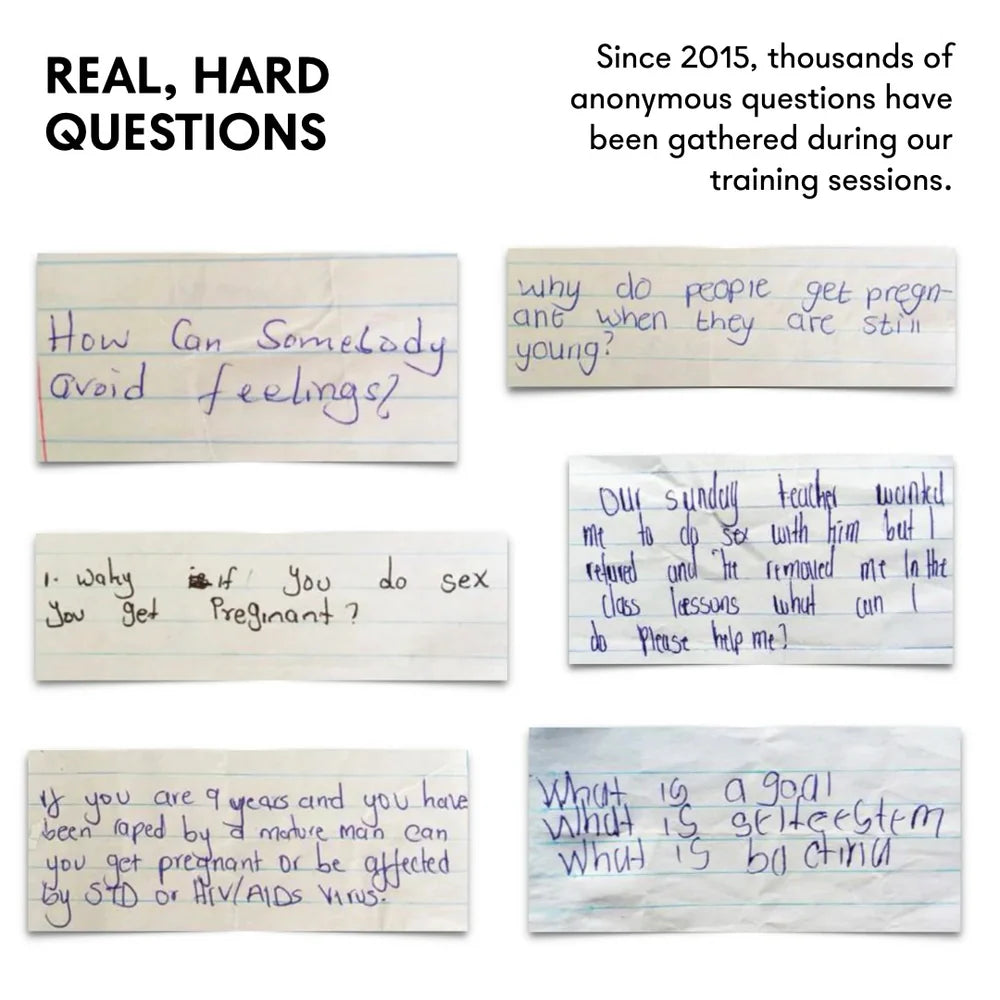 REAL, HARD
QUESTIONS
Since 2015, thousands of
anonymous questions have
been gathered during our
training sessions.
How Can Somebody
avoid feelings?
why do people get pregn-
ant when they are still
young?
1. wahy if you do sex
You get Preginant?
Our sunday teacher wanted
me to do sex with him but I
refured and he removed me In the
class lessons what can I
do please help me?
if you are 9 years and you have
been raped by a mature man can
you get pregnant or be affected
by STD or HIV/AIDs virus.
What is a goal
What is selfeestem
What is